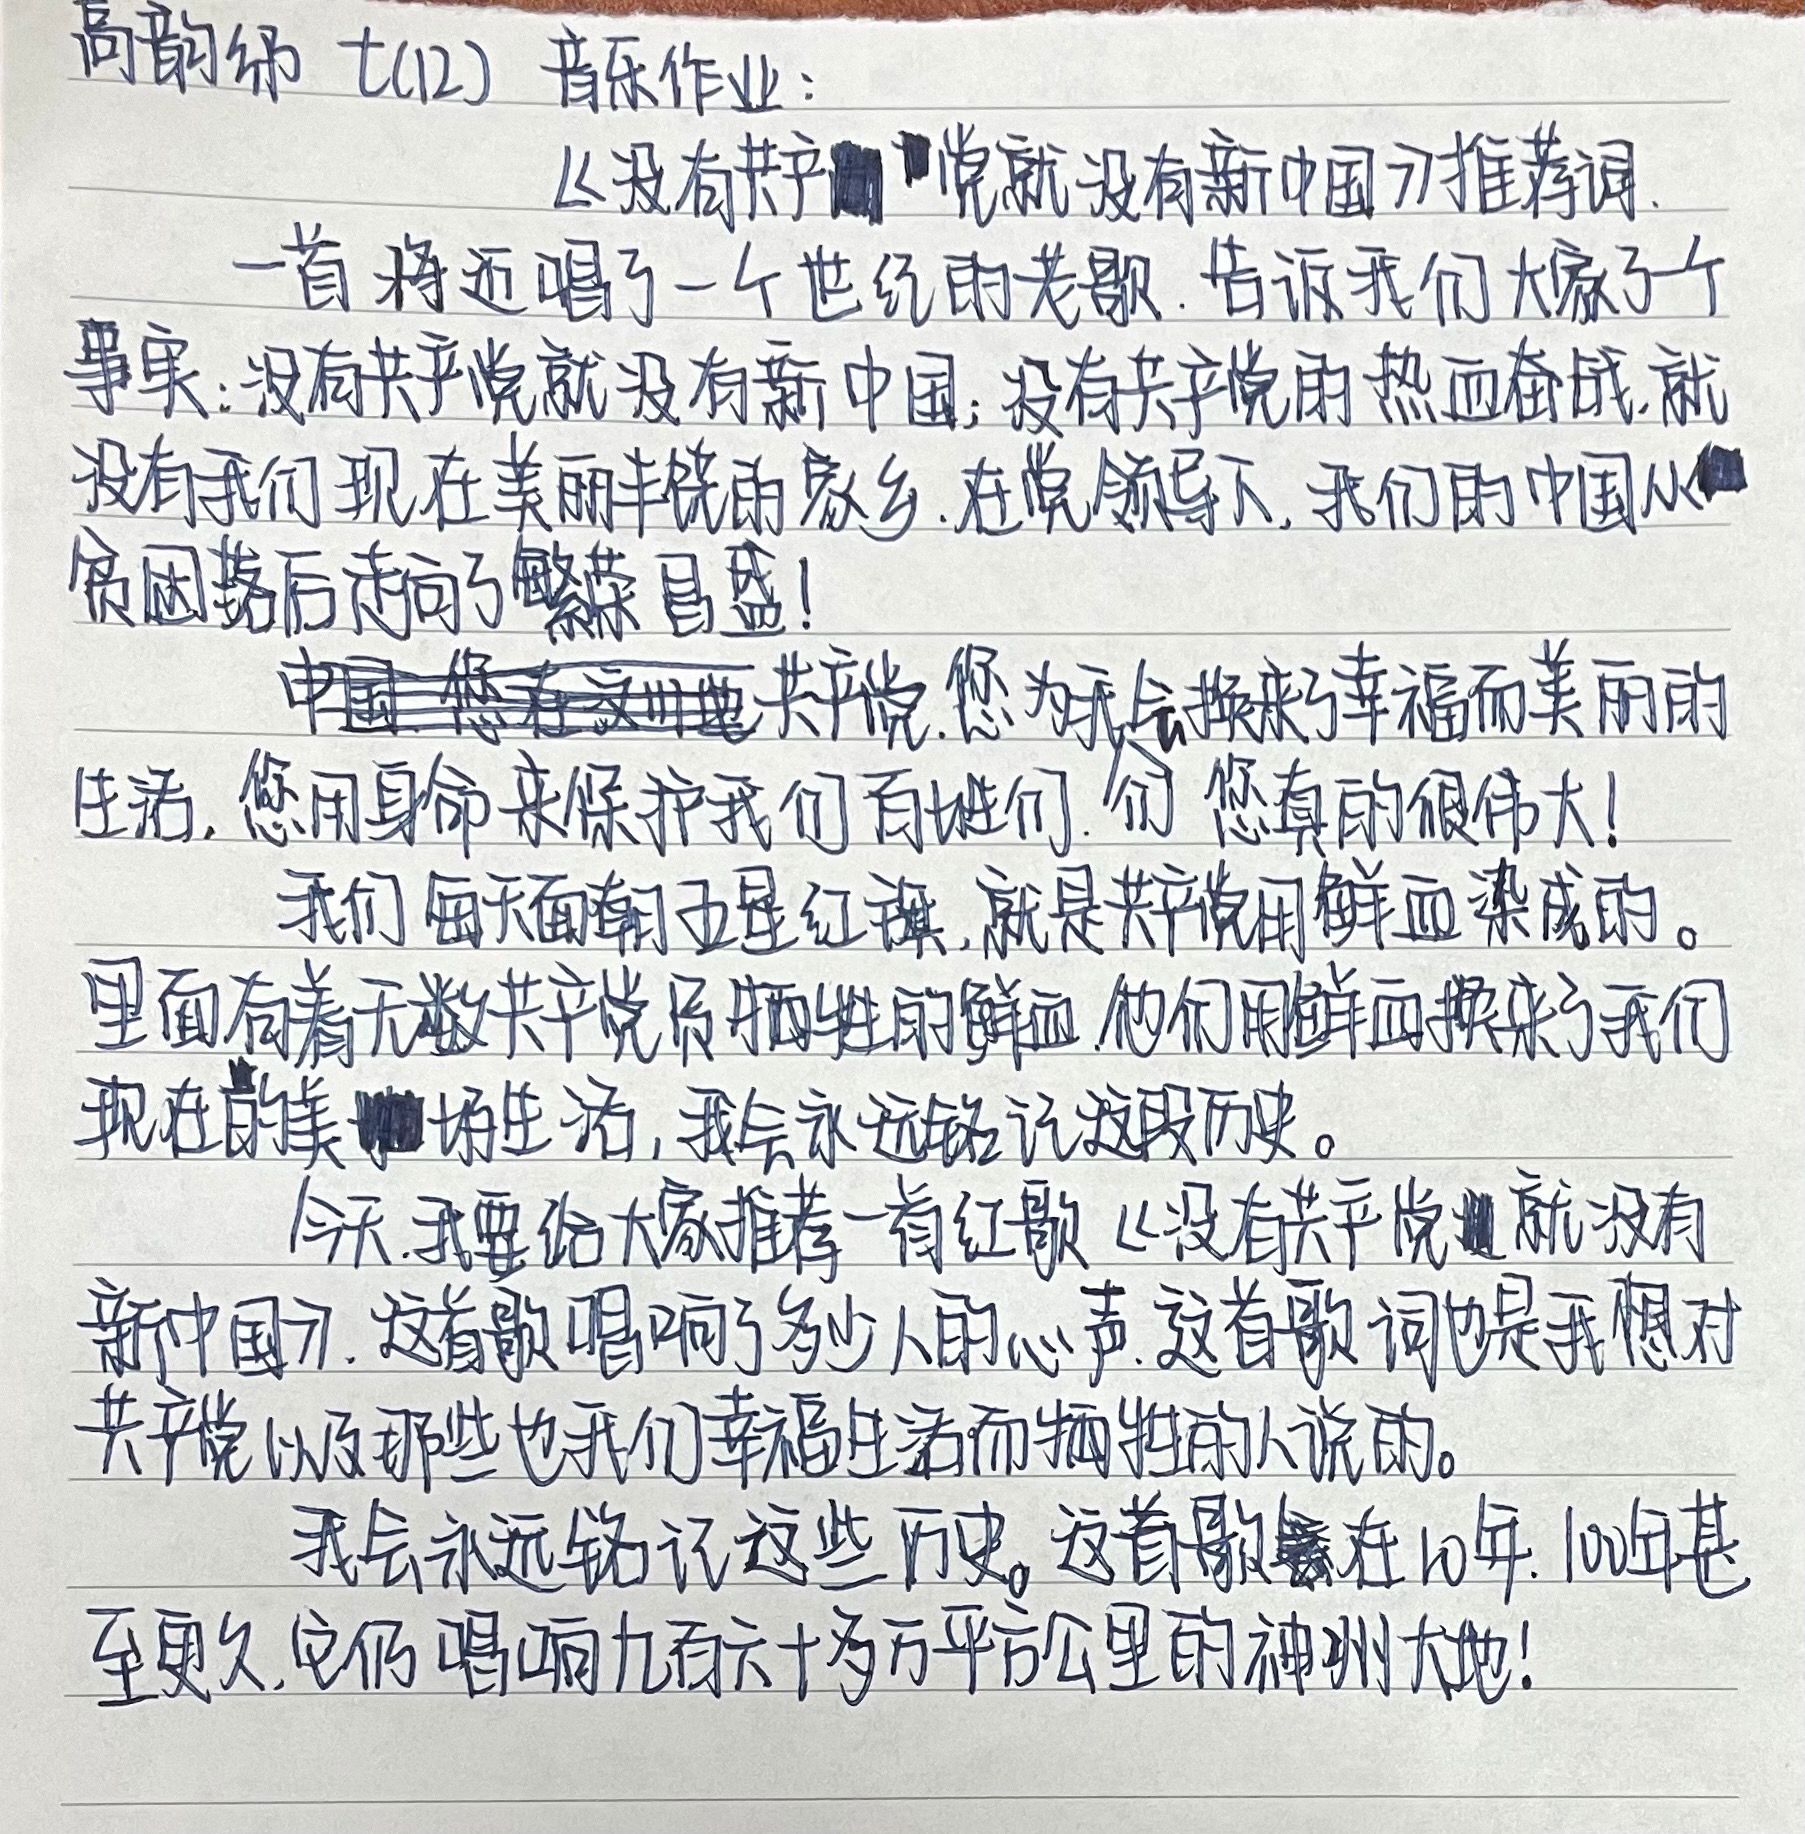 高韵 七(12) 音乐作业:
《没有共产党就没有新中国》推荐词.
一首将近唱了一个世纪的老歌.告诉我们大家了一个
事实:没有共产党就没有新中国;没有共产党的热血奋战,就
没有我们现在美丽丰饶的家乡.在党领导下,我们的中国从
贫困落后走向了繁荣昌盛!
共产党.您为我们会换来了幸福而美丽的
生活,您用身命来保护我们百姓们.您真的很伟大!
我们每天面朝五星红旗,就是共产党用鲜血染成的。
里面有着无数共产党员牺牲的鲜血.他们用鲜血换来了我们
现在的美好生活,我会永远铭记这段历史。
今天.我要给大家推荐一首红歌《没有共产党就没有
新中国》.这首歌唱响了多少人的心声.这首歌词也是我想对
共产党以及那些也我们幸福生活而牺牲的人说的。
我会永远铭记这些历史。这首歌在10年.100年甚
至更久,它仍唱响九百六十多万平方公里的神州大地!